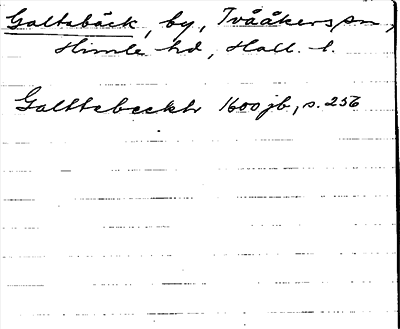 Galtabäck, by, Tvååkers sn,
Himle hd, Hall. l.
Galttebeckh 1600 jb, s. 256